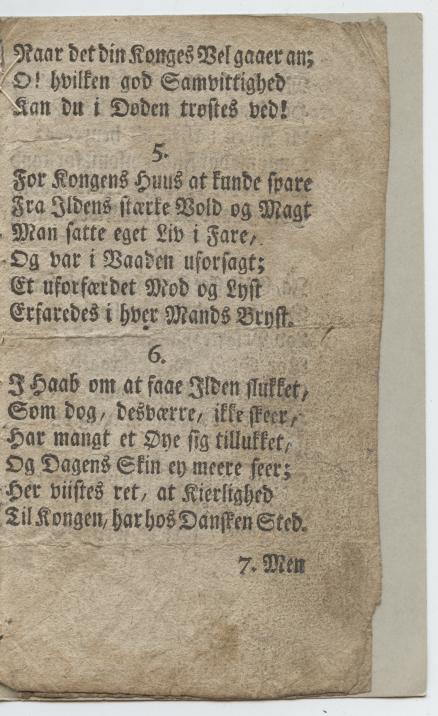 Naar det din Konges Vel gaaer an;
O! hvilken god Samvittighed
Kan du i Døden trøstes ved!
5.
For Kongens Huus at kunde spare
Fra Ildens stærke Vold og Magt
Man satte eget Liv i Fare,
Og var i Vaaden uforsagt;
Et uforfærdet Mod og Lyst
Erfaredes i hver Mands Bryst.
6.
I Haab om at faae Ilden slukket,
Som dog, desværre, ikke skeer,
Har mangt et Øye sig tillukket,
Og Dagens Skin ey meere seer;
Her viistes ret, at Kierlighed
Til Kongen, har hos Dansken Sted.
7. Men